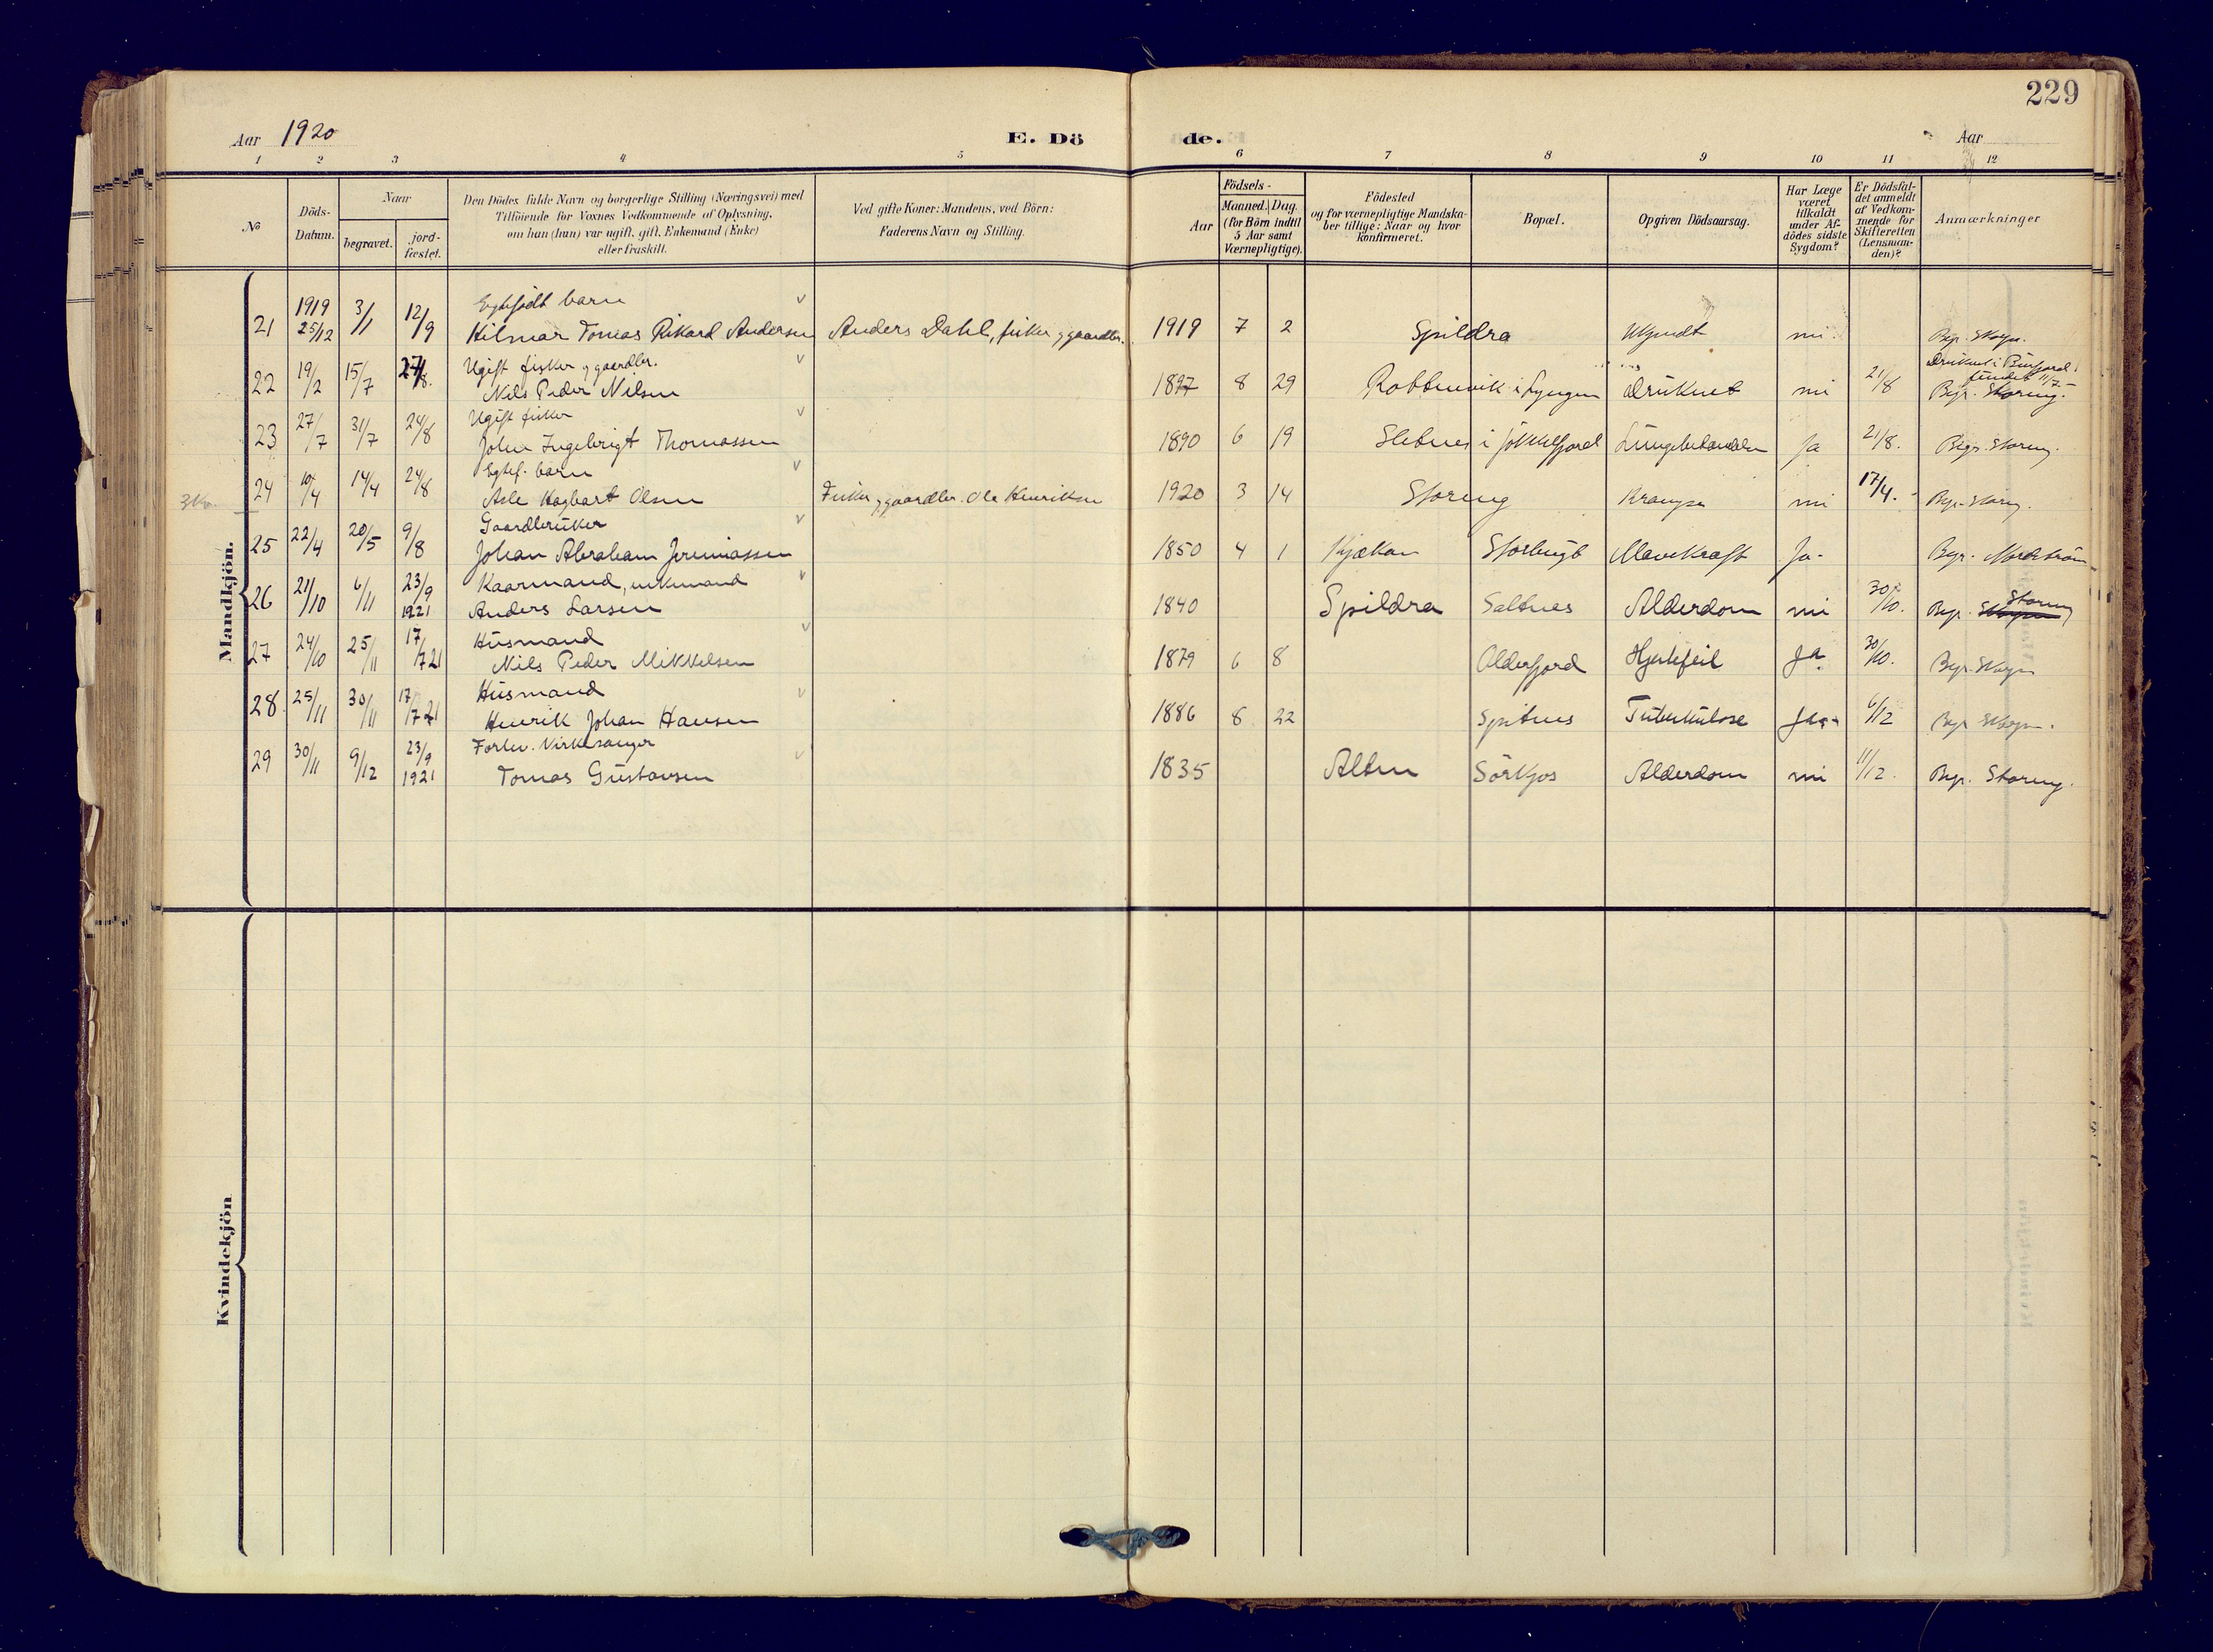 229
Aar 1920
E. Dö de.
Aar
1 2 3 4 5 6 7 8 9 10 11 12
No
Döds-Datum.
Naar
begravet.
jord-fæstet.
Den Dödes fulde Navn og borgerlige Stilling (Næringsvei) med
Tilföiende for Voxnes Vedkommende af Oplysning,
om han (hun) var ugift, gift, Enkemand (Enke)
eller fraskilt.
Ved gifte Koner: Mandens, ved Börn:
Faderens Navn og Stilling.
Födsels-
Aar
Maaned. Dag.
(for Börn indtil
5 Aar samt
Værnepligtige).
Födested
og for værnepligtige Mandska-
ber tillige: Naar og hvor
konfirmeret.
Bopæl.
Opgiven Dödsaarsag.
Har Læge
været
tilkaldt
under Af-
dödes sidste
Sygdom?
Er Dödsfal-
det anmeldt
af Vedkom-
mende for
Skifteretten
(Lensman-
den)?
Anmærkninger
Mandkjön.
1919 Egtefödt barn
21 25/12 3/1 12/9 Hilmar Tomas Rikard Andersen Anders Dahl, fisker og gaardbr. 1919 7 2 Spildra Ukjendt nei Begr. Skogn.
Ugift fisker og gaardbr. Druknet i Burfjord
fundet 11/7
22 19/2 15/7 24/8. Nils Peder Nilsen 1897 8 29 Rottenvik i Lyngen druknet nei 21/8 Begr. Storeng.
Ugift fisker
23 27/7 31/7 24/8 Johan Ingebrigt Thomassen 1890 6 19 Sletnes i Jökkelfjord Lungebetændelse Ja 21/8. Begr. Storeng.
Egtef. barn
3 Kv. 24 10/4 14/4 24/8 Asle Hagbart Olsen Fisker og gaardbr. Ole Henriksen 1920 3 14 Storeng Krampe nei 17/4. Begr. Storeng.
Gaardbruker
25 22/4 20/5 9/8 Johan Abraham Jeremiassen 1850 4 1 Kjækan Storbugt Mavekræft Ja. Begr. Nordström
Kaarmand, enkemand
26 21/10 6/11 23/9 1921 Anders Larsen 1840 Spildra Saltnes Alderdom nei 30/10. Begr. Skogn Storeng
Husmand
27 24/10 25/11 17/7 21 Nils Peder Mikkelsen 1879 6 8 Olderfjord Hjertefeil Ja 30/10. Begr. Skogn
Husmand
28 25/11 30/11 17/7 21 Henrik Johan Hansen 1886 8 22 Spitnes Tuberkulose Ja 6/12 Begr. Skogn.
Forhv. Kirkesanger
29 30/11 9/12 23/9 1921 Tomas Gustavsen 1835 Alten Sörkjos Alderdom nei 11/12. Begr. Storeng.
Kvindekjön